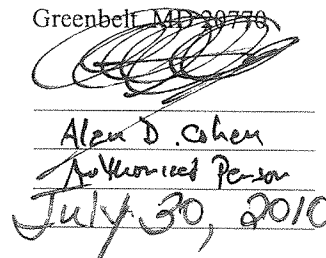 Greenbelt, MD 20770
Alan D. Cohen
Authorized Person
July 30, 2010